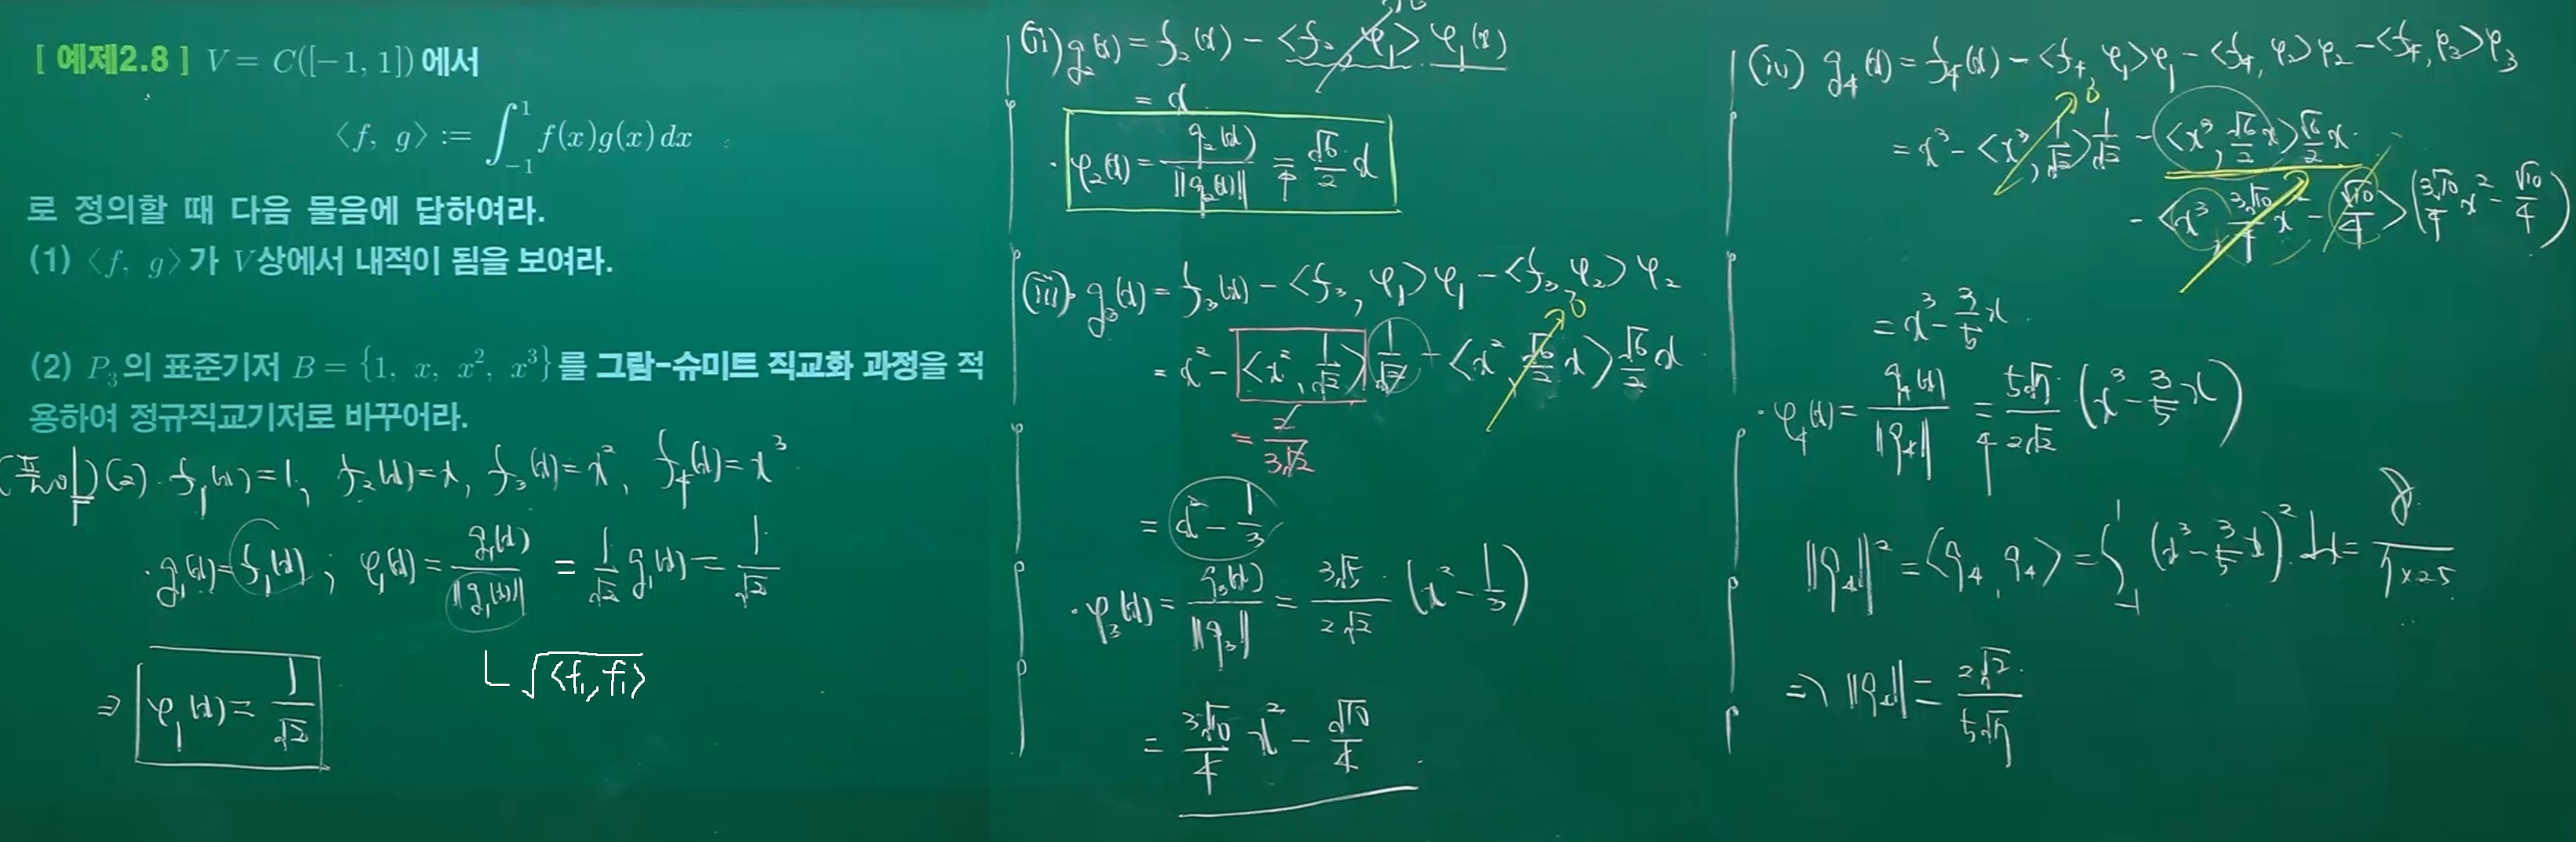 [ 예제2.8 ] V = C([-1, 1])에서
⟨f, g⟩ := ∫_{-1}^{1} f(x)g(x) dx
로 정의할 때 다음 물음에 답하여라.
(1) ⟨f, g⟩가 V상에서 내적이 됨을 보여라.
(2) P₃의 표준기저 B = {1, x, x², x³}를 그람-슈미트 직교화 과정을 적
용하여 정규직교기저로 바꾸어라.
(풀이)(2). f₁(x)=1, f₂(x)=x, f₃(x)=x², f₄(x)=x³
· g₁(x)=f₁(x) ; φ₁(x)= g₁(x)/||g₁(x)|| = 1/√2 g₁(x) = 1/√2
√⟨f₁, f₁⟩
⇒ φ₁(x)= 1/√2
(ii) g₂(x) = f₂(x) - ⟨f₂, φ₁⟩ φ₁(x)
= x
· φ₂(x) = g₂(x)/||g₂(x)|| = √6/2 x
(iii) g₃(x) = f₃(x) - ⟨f₃, φ₁⟩φ₁ - ⟨f₃, φ₂⟩ φ₂
= x² - ⟨x², 1/√2⟩ 1/√2 - ⟨x², √6/2 x⟩ √6/2 x 0
= 2/3√2
= x² - 1/3
· φ₃(x) = g₃(x)/||g₃|| = 3√5/2√2 (x² - 1/3)
= 3√10/4 x² - √10/4
(iv) g₄(x) = f₄(x) - ⟨f₄, φ₁⟩φ₁ - ⟨f₄, φ₂⟩φ₂ - ⟨f₄, φ₃⟩φ₃
= x³ - ⟨x³, 1/√2⟩ 1/√2 - ⟨x³, √6/2 x⟩ √6/2 x 0
- ⟨x³, 3√10/4 x² - √10/4⟩ (3√10/4 x² - √10/4)
= x³ - 3/5 x
· φ₄(x) = g₄(x)/||g₄|| = 5√7/2√2 (x³ - 3/5 x)
||g₄||² = ⟨g₄, g₄⟩ = ∫_{-1}^{1} (x³ - 3/5 x)² dx = 8/7×25
⇒ ||g₄|| = 2√2/5√7